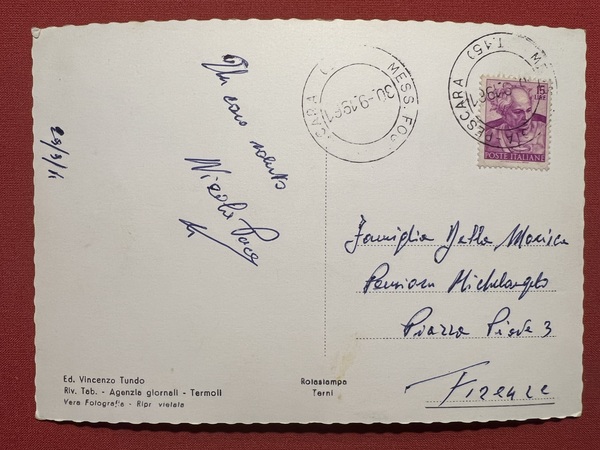 Un caro saluto
Nicola Pace
29/9/61
MESS. FOG
30.-9.1961
PESCARA
15
LIRE
POSTE ITALIANE
Famiglia Della Marica
Pensione Michelangelo
Piazza Piave 3
Firenze
Ed. Vincenzo Tundo
Riv. Tab. - Agenzia giornali - Termoli
Vera Fotografia - Ripr. vietata
Rotastampa
Terni